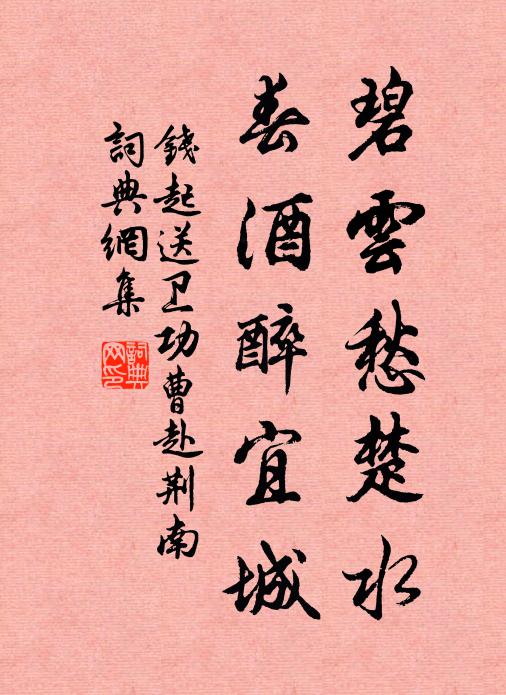 碧雲愁楚水
春酒醉宜城
錢起送卫功曹赴荆南
詞典網集
詞典網印